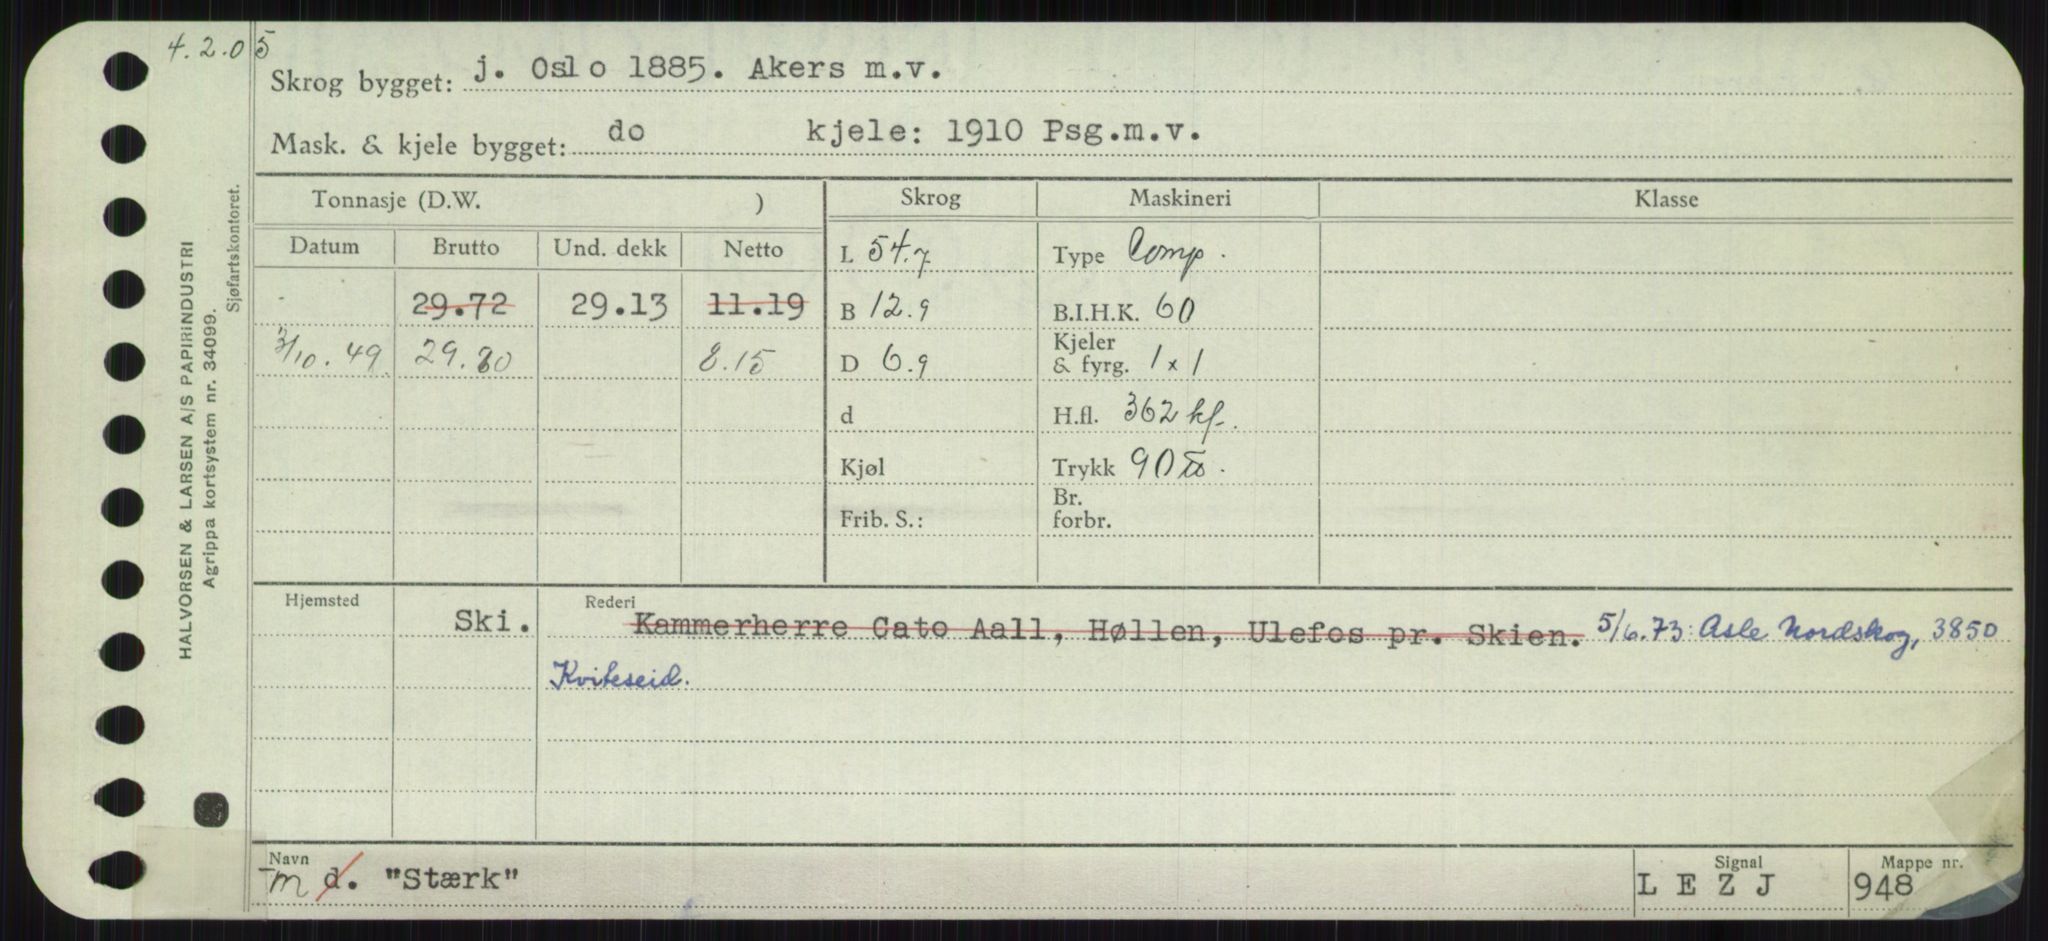 4.2.05
Skrog bygget: j. Oslo 1885. Akers m.v.
Mask. & kjele bygget: do kjele: 1910 Psg.m.v.
Tonnasje (D.W. ) Skrog Maskineri Klasse
Datum Brutto Und. dekk Netto
L 54.7 Type Comp.
29.72 29.13 11.19 B 12.9 B.I.H.K. 60
3/10.49 29.80 8.15 D 6.9 Kjeler & fyrg. 1 x 1
d H.fl. 362 kf.
Kjøl Trykk 90
Frib. S.: Br. forbr.
Hjemsted Rederi
Ski. Kammerherre Cato Aall, Høllen, Ulefos pr. Skien. 5/6.73: Asle Nordskog, 3850
Kviteseid.
Navn Signal Mappe nr.
m d. "Stærk" L E Z J 948
HALVORSEN & LARSEN A/S PAPIRINDUSTRI
Agrippa kortsystem nr. 34099.
Sjøfartskontoret.